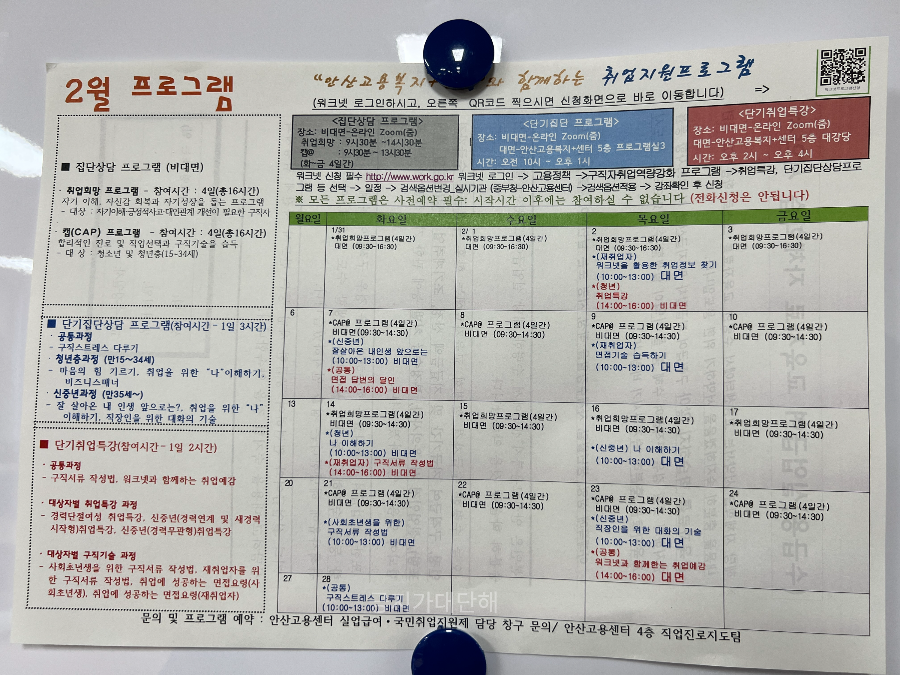 2월 프로그램
"안산고용복지 함께하는 취업지원프로그램
(워크넷 로그인하시고, 오른쪽 QR코드 찍으시면 신청화면으로 바로 이동합니다) =>
■ 집단상담 프로그램 (비대면)
· 취업희망 프로그램 - 참여시간 : 4일(총16시간)
자기 이해, 자신감 회복과 자기성장을 돕는 프로그램
- 대상 : 자기이해·긍정적사고·대인관계 개선이 필요한 구직자
· 캡(CAP) 프로그램 - 참여시간 : 4일(총16시간)
합리적인 진로 및 직업선택과 구직기술을 습득
- 대 상 : 청소년 및 청년층(15-34세)
■ 단기집단상담 프로그램(참여시간-1일 3시간)
· 공통과정
- 구직스트레스 다루기
· 청년층과정 (만15~34세)
- 마음의 힘 기르기, 취업을 위한 "나"이해하기,
비즈니스매너
· 신중년과정(만35세~)
- 잘 살아온 내 인생 앞으로는?, 취업을 위한 "나"
이해하기, 직장인을 위한 대화의 기술
■ 단기취업특강(참여시간-1일 2시간)
· 공통과정
- 구직서류 작성법, 워크넷과 함께하는 취업예감
· 대상자별 취업특강 과정
- 경력단절여성 취업특강, 신중년(경력연계 및 새경력
시작형)취업특강, 신중년(경력무관형)취업특강
· 대상자별 구직기술 과정
- 사회초년생을 위한 구직서류 작성법, 재취업자를 위
한 구직서류 작성법, 취업에 성공하는 면접요령(사
회초년생), 취업에 성공하는 면접요령(재취업자)
<집단상담 프로그램>
장소: 비대면-온라인 Zoom(줌)
취업희망 : 9시30분 ~14시30분
캡@ : 9시30분~ 13시30분
(화-금 4일간)
<단기집단 프로그램>
장소: 비대면-온라인 Zoom(줌)
대면-안산고용복지+센터 5층 프로그램실3
시간: 오전 10시 ~ 오후 1시
<단기취업특강>
장소: 비대면-온라인 Zoom(줌)
대면-안산고용복지+센터 5층 대강당
시간: 오후 2시 ~ 오후 4시
워크넷 신청 필수 http://www.work.go.kr 워크넷 로그인 -> 고용정책 ->구직자취업역량강화 프로그램 ->취업특강, 단기집단상담프로
그램 등 선택 -> 일정 -> 검색옵션변경_실시기관 (중부청-안산고용센터) ->검색옵션적용 -> 강좌확인 후 신청
※ 모든 프로그램은 사전예약 필수: 시작시간 이후에는 참여하실 수 없습니다 (전화신청은 안됩니다)
월요일 화요일 수요일 목요일 금요일
1/31
*취업희망프로그램(4일간)
대면 (09:30-16:30)
2/ 1
*취업희망프로그램(4일간)
대면 (09:30-16:30)
2
*취업희망프로그램(4일간)
대면 (09:30-16:30)
*(재취업자)
워크넷을 활용한 취업정보 찾기
(10:00~13:00) 대면
*(청년)
취업특강
(14:00~16:00) 비대면
3
*취업희망프로그램(4일간)
대면 (09:30-16:30)
6
7
*CAP@ 프로그램(4일간)
비대면(09:30~14:30)
*(신중년)
잘살아온 내인생 앞으로는
(10:00~13:00) 비대면
*(공통)
면접 답변의 달인
(14:00~16:00) 비대면
8
*CAP@ 프로그램(4일간)
비대면 (09:30~14:30)
9
*CAP@ 프로그램(4일간)
비대면 (09:30~14:30)
*(재취업자)
면접기술 습득하기
(10:00~13:00) 대면
10
*CAP@ 프로그램(4일간)
비대면 (09:30~14:30)
13
14
*취업희망프로그램(4일간)
비대면 (09:30~14:30)
*(청년)
나 이해하기
(10:00~13:00) 비대면
*(재취업자) 구직서류 작성법
(14:00~16:00) 비대면
15
*취업희망프로그램(4일간)
비대면 (09:30~14:30)
16
*취업희망프로그램(4일간)
비대면 (09:30~14:30)
*(신중년) 나 이해하기
(10:00~13:00) 대면
17
*취업희망프로그램(4일간)
비대면 (09:30~14:30)
20
21
*CAP@ 프로그램(4일간)
비대면 (09:30~14:30)
*(사회초년생을 위한)
구직서류 작성법
(10:00~13:00) 비대면
22
*CAP@ 프로그램(4일간)
비대면 (09:30~14:30)
23
*CAP@ 프로그램(4일간)
비대면 (09:30~14:30)
*(신중년)
직장인을 위한 대화의 기술
(10:00~13:00) 대면
*(공통)
워크넷과 함께한는 취업예감
(14:00~16:00) 대면
24
*CAP@ 프로그램(4일간)
비대면 (09:30~14:30)
27
28
*(공통)
구직스트레스 다루기
(10:00~13:00) 비대면
가대단해
문의 및 프로그램 예약 : 안산고용센터 실업급여·국민취업지원제 담당 창구 문의/ 안산고용센터 4층 직업진로지도팀